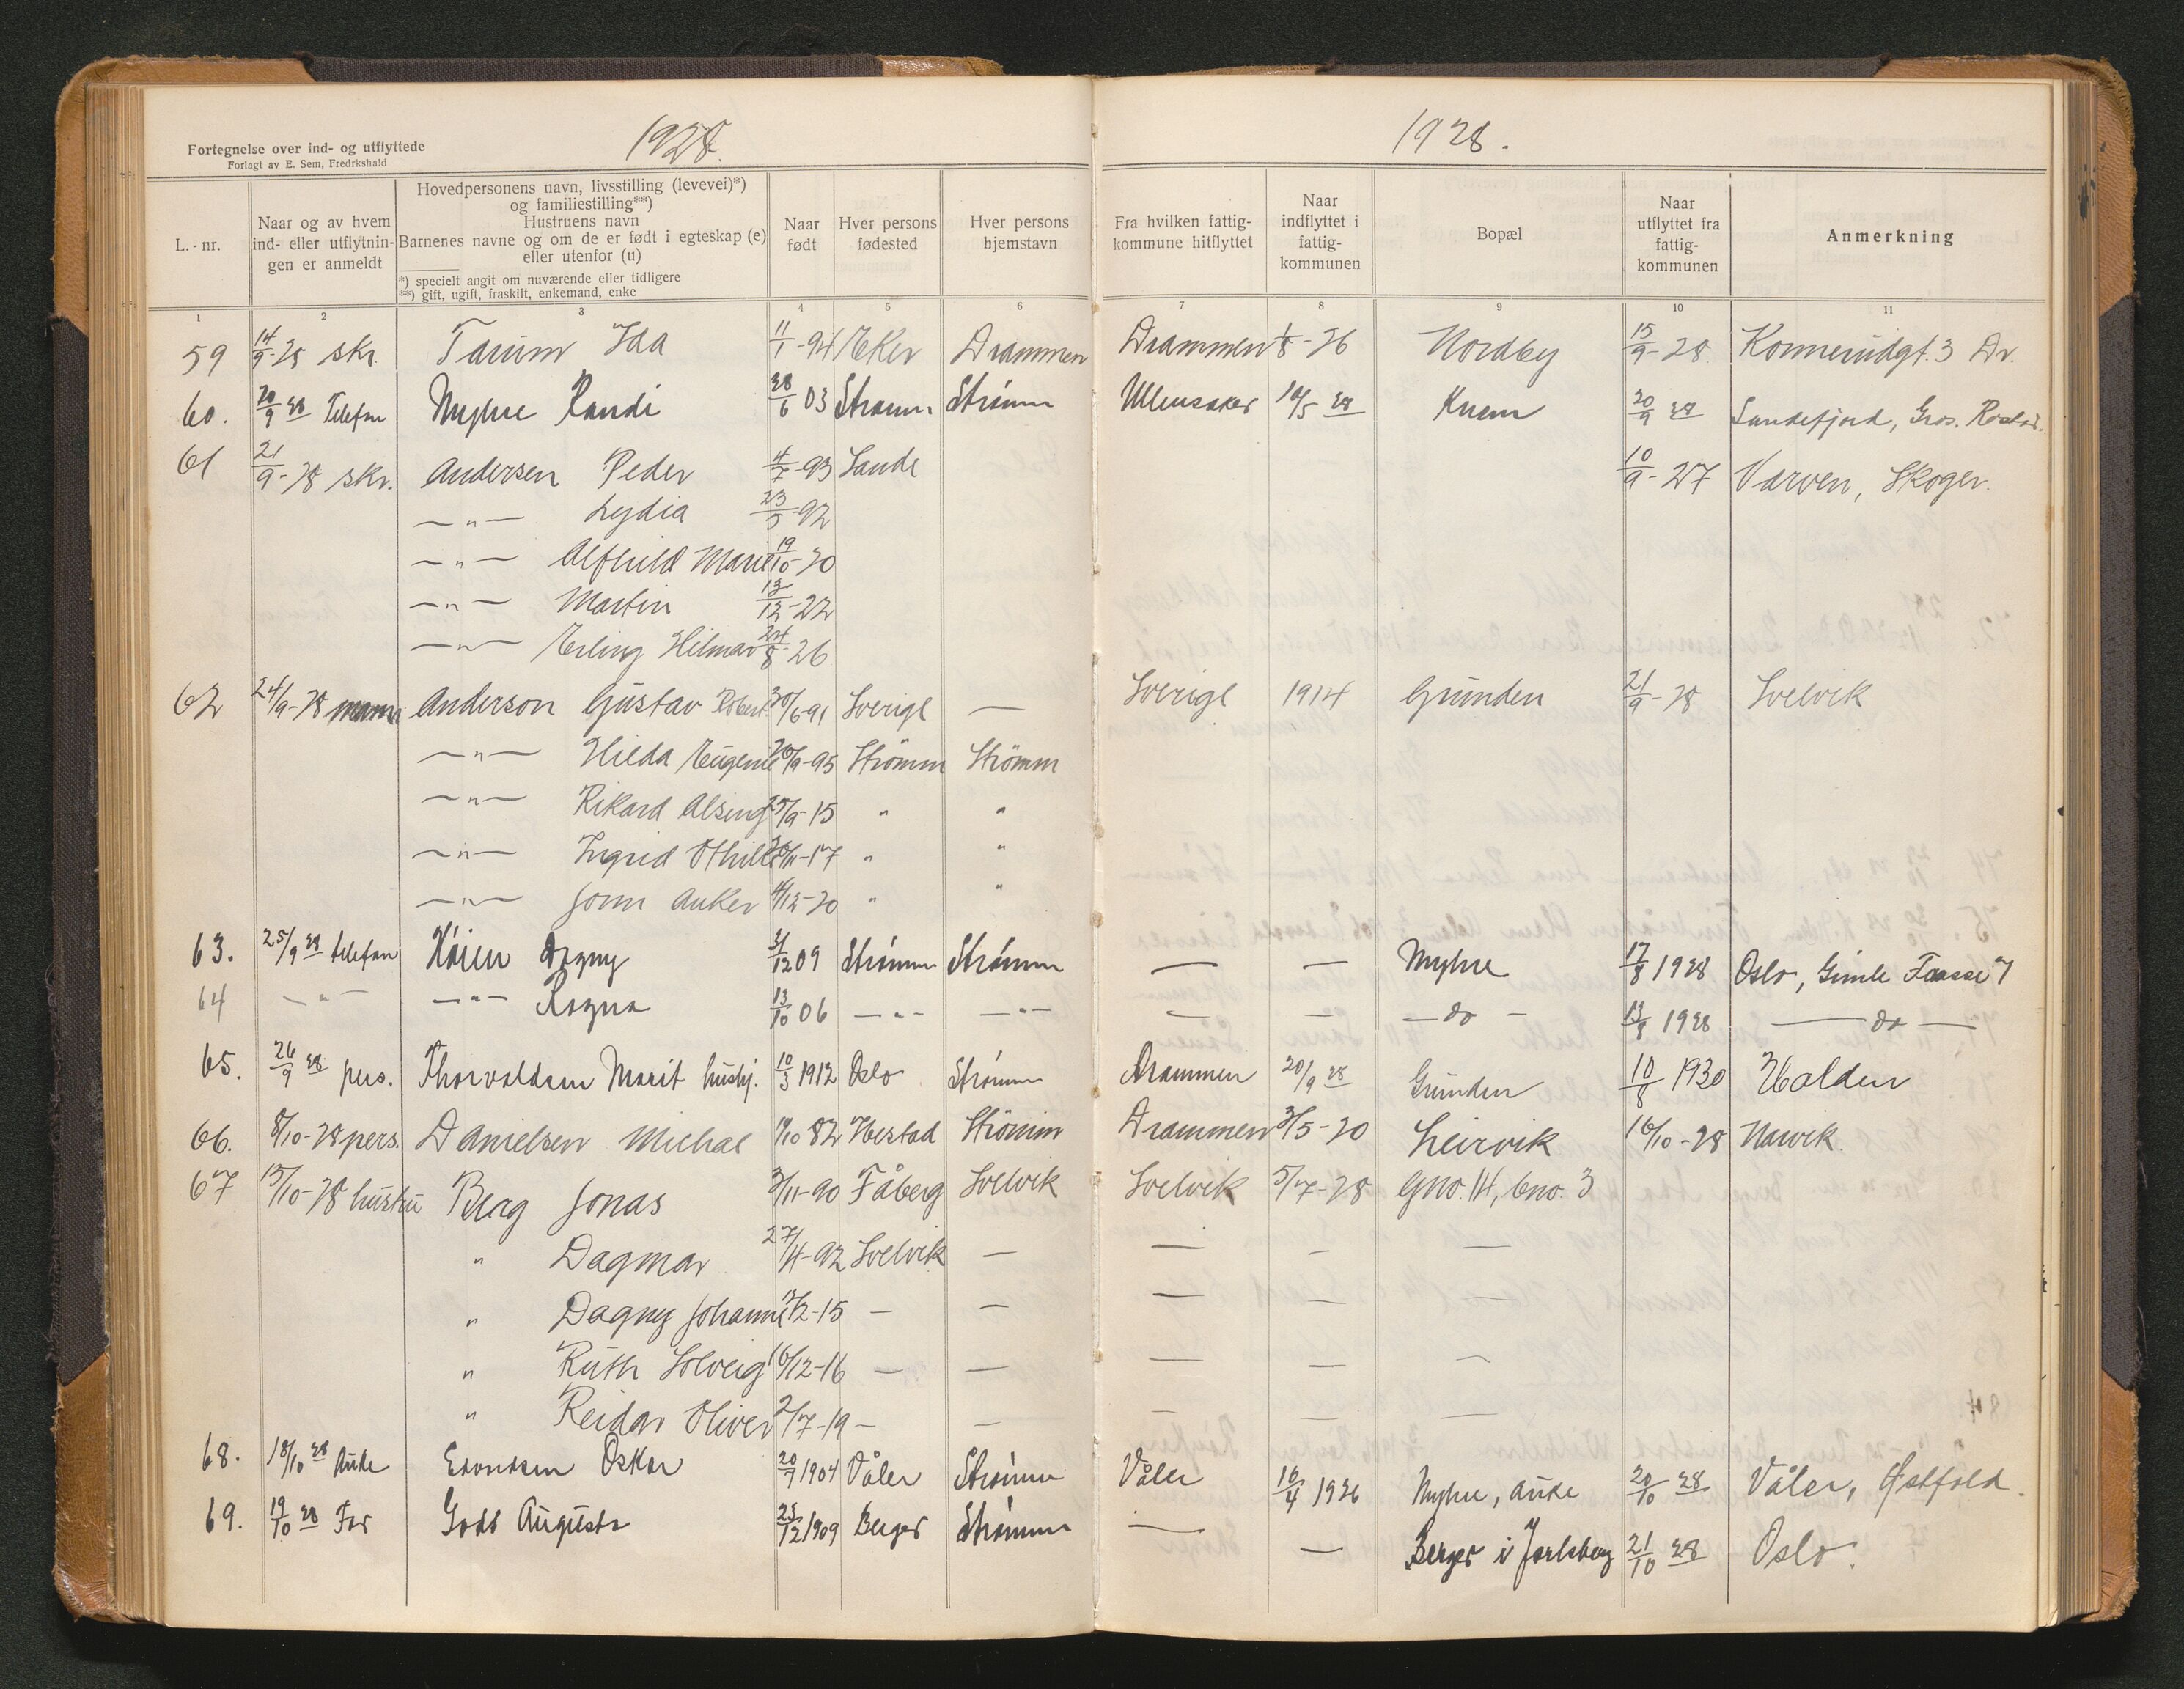 Fortegnelse over ind- og utflyttede
Forlagt av E. Sem, Fredrkshald
1928.
1928.
L.-nr.
Naar og av hvem ind- eller utflytnin- gen er anmeldt
Hovedpersonens navn, livsstilling (levevei)*) og familiestilling**) Hustruens navn Barnenes navne og om de er født i egteskap (e) eller utenfor (u)
*) specielt angit om nuværende eller tidligere
**) gift, ugift, fraskilt, enkemand, enke
Naar født
Hver persons fødested
Hver persons hjemstavn
Fra hvilken fattig- kommune hitflyttet
Naar indflyttet i fattig- kommunen
Bopæl
Naar utflyttet fra fattig- kommunen
Anmerkning
1 2 3 4 5 6 7 8 9 10 11
59 14/9-28 skr. Tarum Ida 11/1-94 Eker Drammen Drammen 1/8-26 Nordby 15/9-28 Konnerudgt. 3 Dr.
60. 20/9 28 Telefon Myhre Randi 28/6 03 Strømm Strømm Ullensaker 10/5 28 Knem 20/9 28 Sandefjord, Gros.
61 21/9-28 skr. Andersen Peder 4/7-93 Sande 10/9-27 Varven, Skoger.
—"— Lydia 23/5-92
—"— Alfhild Marie 19/10-20
—"— Martin 13/12-22
—"— Erling Hilmar 24/8-26
62 24/9-28 Anderson Gustav Robert 30/6-91 Sverige — Sverige 1914 Grunden 21/9-28 Svelvik
—"— Hilda Eugenie 20/9-95 Strömm Strömm
—"— Rikard Alseng 25/9-15 " "
—"— Ingrid Othilie 20/11-17 " "
—"— Jonn Anker 4/12-20 " "
63. 25/9 28 telefon Høien Dagny 31/12 09 Strømm Strømm — — Myhre 17/8 1928 Oslo, Gimle Terasse 7
64 —"— —"— Ragna 13/10 06 —"— —"— — — — do — 13/8 1928 — do —
65. 26/9 28 pers. Thorvaldsen Marit hushj. 10/3 1912 Oslo Strømm Drammen 20/9 28 Grunden 10/8 1930 Halden
66. 8/10-28 pers. Danielsen Michal 11/10 82 Hestad Strömm Drammen 3/5-20 Leirvik 10/10-28 Narvik
67 15/10-28 hustru Berg Jonas 3/11-90 Fåberg Svelvik Svelvik 5/7-28 Gno. 14, bno. 3
" Dagmar 27/4-92 Svelvik — — — —
" Dagny Johanne 12/2-15 — — — — —
" Ruth Solveig 16/12-16 — — — — —
" Reidar Oliver 2/7-19 — — — — —
68. 18/10 28 Auke Edvardsen Oskar 20/9 1904 Våler Strømm Våler 16/4 1926 Myhre, Auke 20/10 28 Våler, Østfold.
69. 19/10 28 Far Godt Augusta 23/12 1909 Berger Strømm — — Berger i Jarlsberg 21/10 28 Oslo.